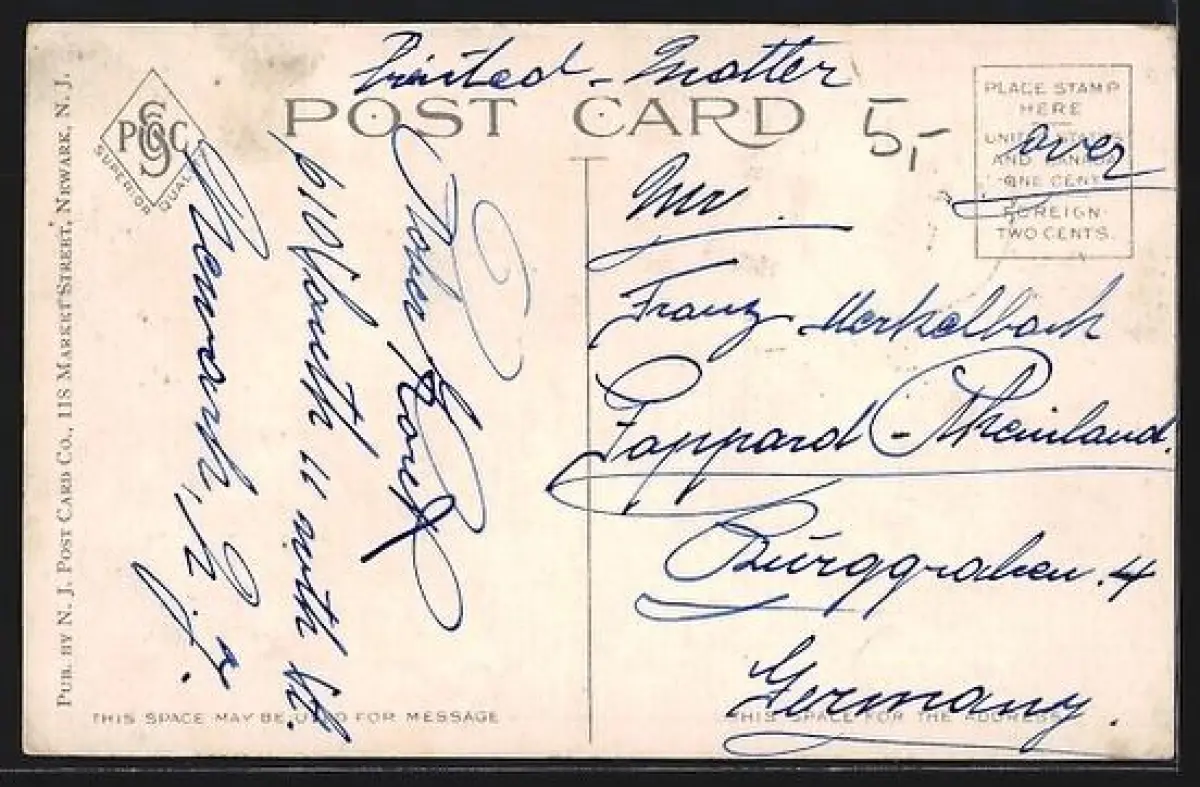 Printed - Matter
POST CARD
5,-
PLACE STAMP
HERE
UNITED STATES
AND CANADA
ONE CENT
FOREIGN
TWO CENTS.
over
P C
SUPERIOR
QUAL
PUB. BY N. J. POST CARD CO., 118 MARKET STREET, NEWARK, N. J.
Newark, N. J.
South 11 nth St.
Mr
Franz Merkelbach
Boppard - Rheinland.
Burggraben. 4
Germany.
THIS SPACE MAY BE USED FOR MESSAGE
THIS SPACE FOR THE ADDRESS